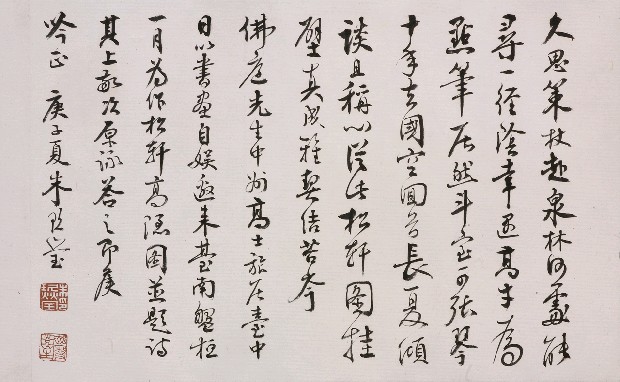 久思策杖赴泉林何處能
尋一徑陰幸遇高才為
點筆居然斗室可張琴
十年去國空回首長夏傾
談且稱心從此松軒圖挂
壁真成雅契結苔岑
佛庭先生中州高士旅居臺中
日以書畫自娛邀來臺南盤桓
一月為作松軒高隱圖並題詩
其上敬次原韻答之即矦
吟正 庚子夏朱玖瑩